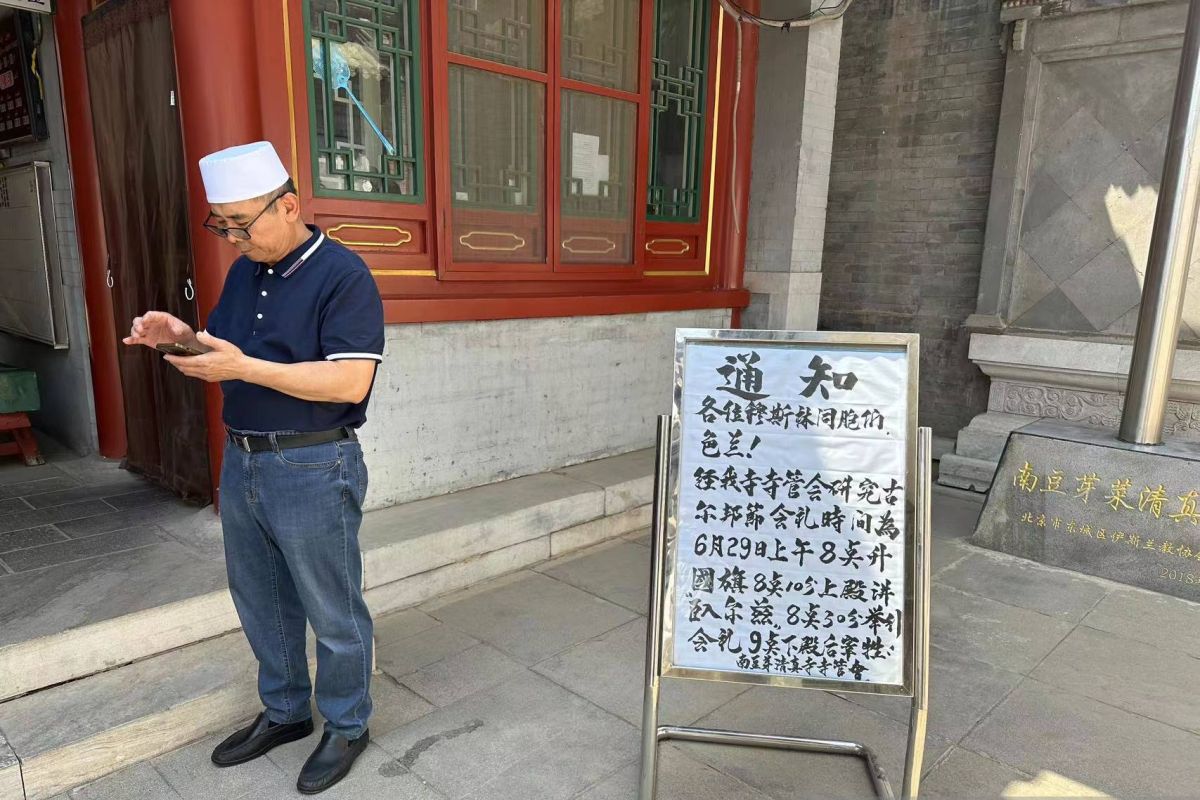 通知
各位穆斯林同胞们
色兰！
经我寺寺管会研究古
尔邦節会礼時间為
6月29日上午8点升
國旗8点10分上殿讲
“卧尔兹”8点30分举行
会礼9点下殿后宰牲。
南豆芽清真寺寺管會
南豆芽菜清真
北京市东城区伊斯兰教协
2018